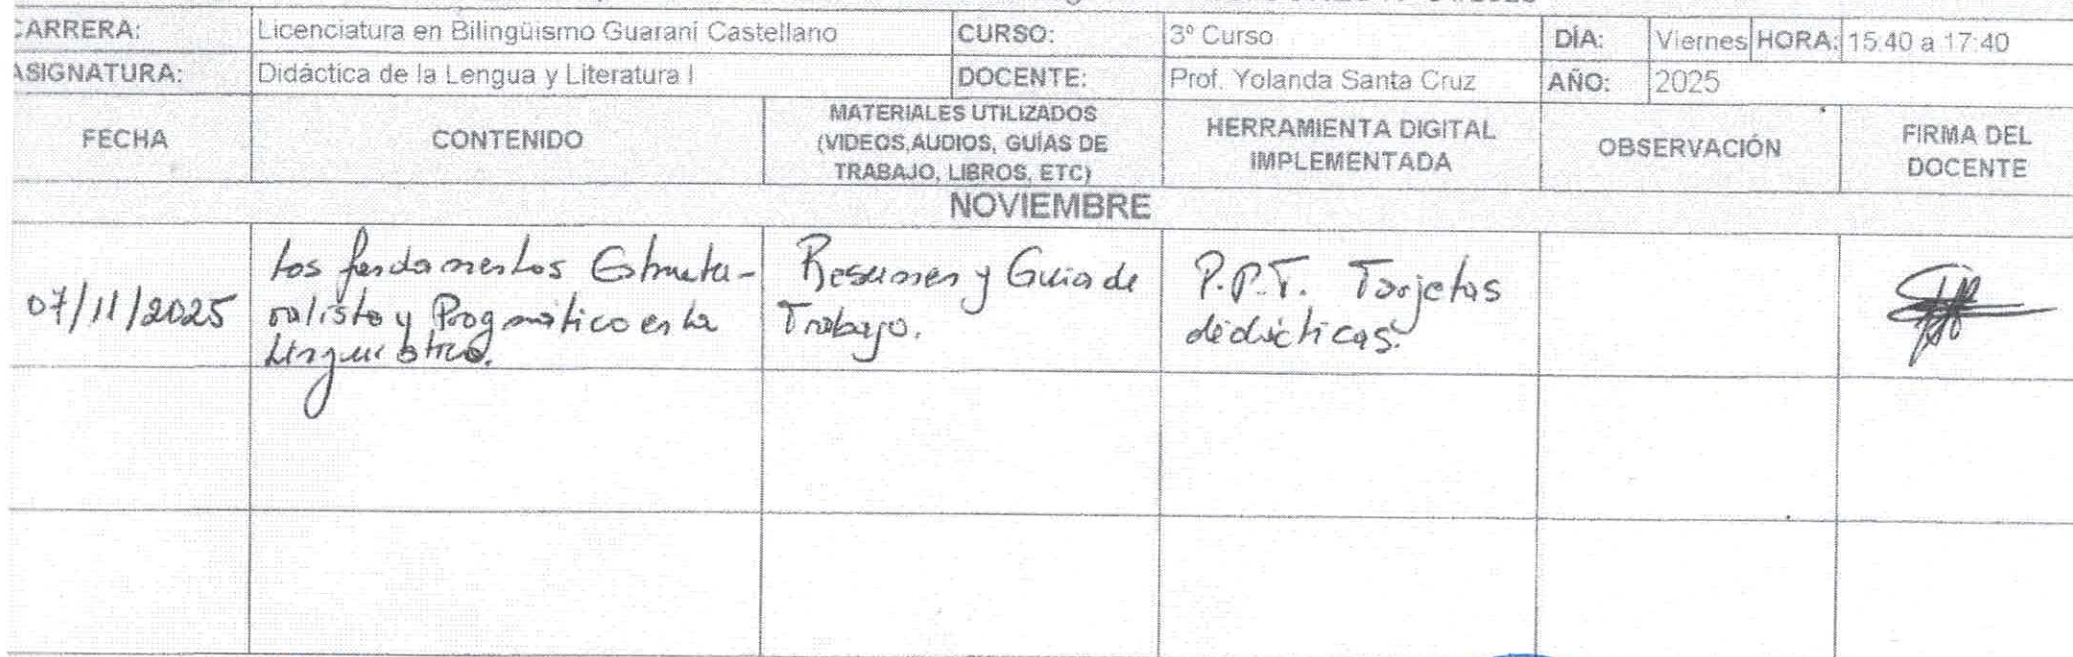 CARRERA: Licenciatura en Bilingüismo Guaraní Castellano CURSO: 3º Curso DÍA: Viernes HORA: 15:40 a 17:40
ASIGNATURA: Didáctica de la Lengua y Literatura I DOCENTE: Prof. Yolanda Santa Cruz AÑO: 2025
FECHA
CONTENIDO
MATERIALES UTILIZADOS
(VIDEOS,AUDIOS, GUÍAS DE
TRABAJO, LIBROS, ETC)
HERRAMIENTA DIGITAL
IMPLEMENTADA
OBSERVACIÓN
FIRMA DEL
DOCENTE
NOVIEMBRE
07/11/2025
Los fundamentos Estructu-
ralista y Pragmático en la
Lingüística.
Resumen y Guia de
Trabajo.
P.P.T. Tarjetas
didácticas.